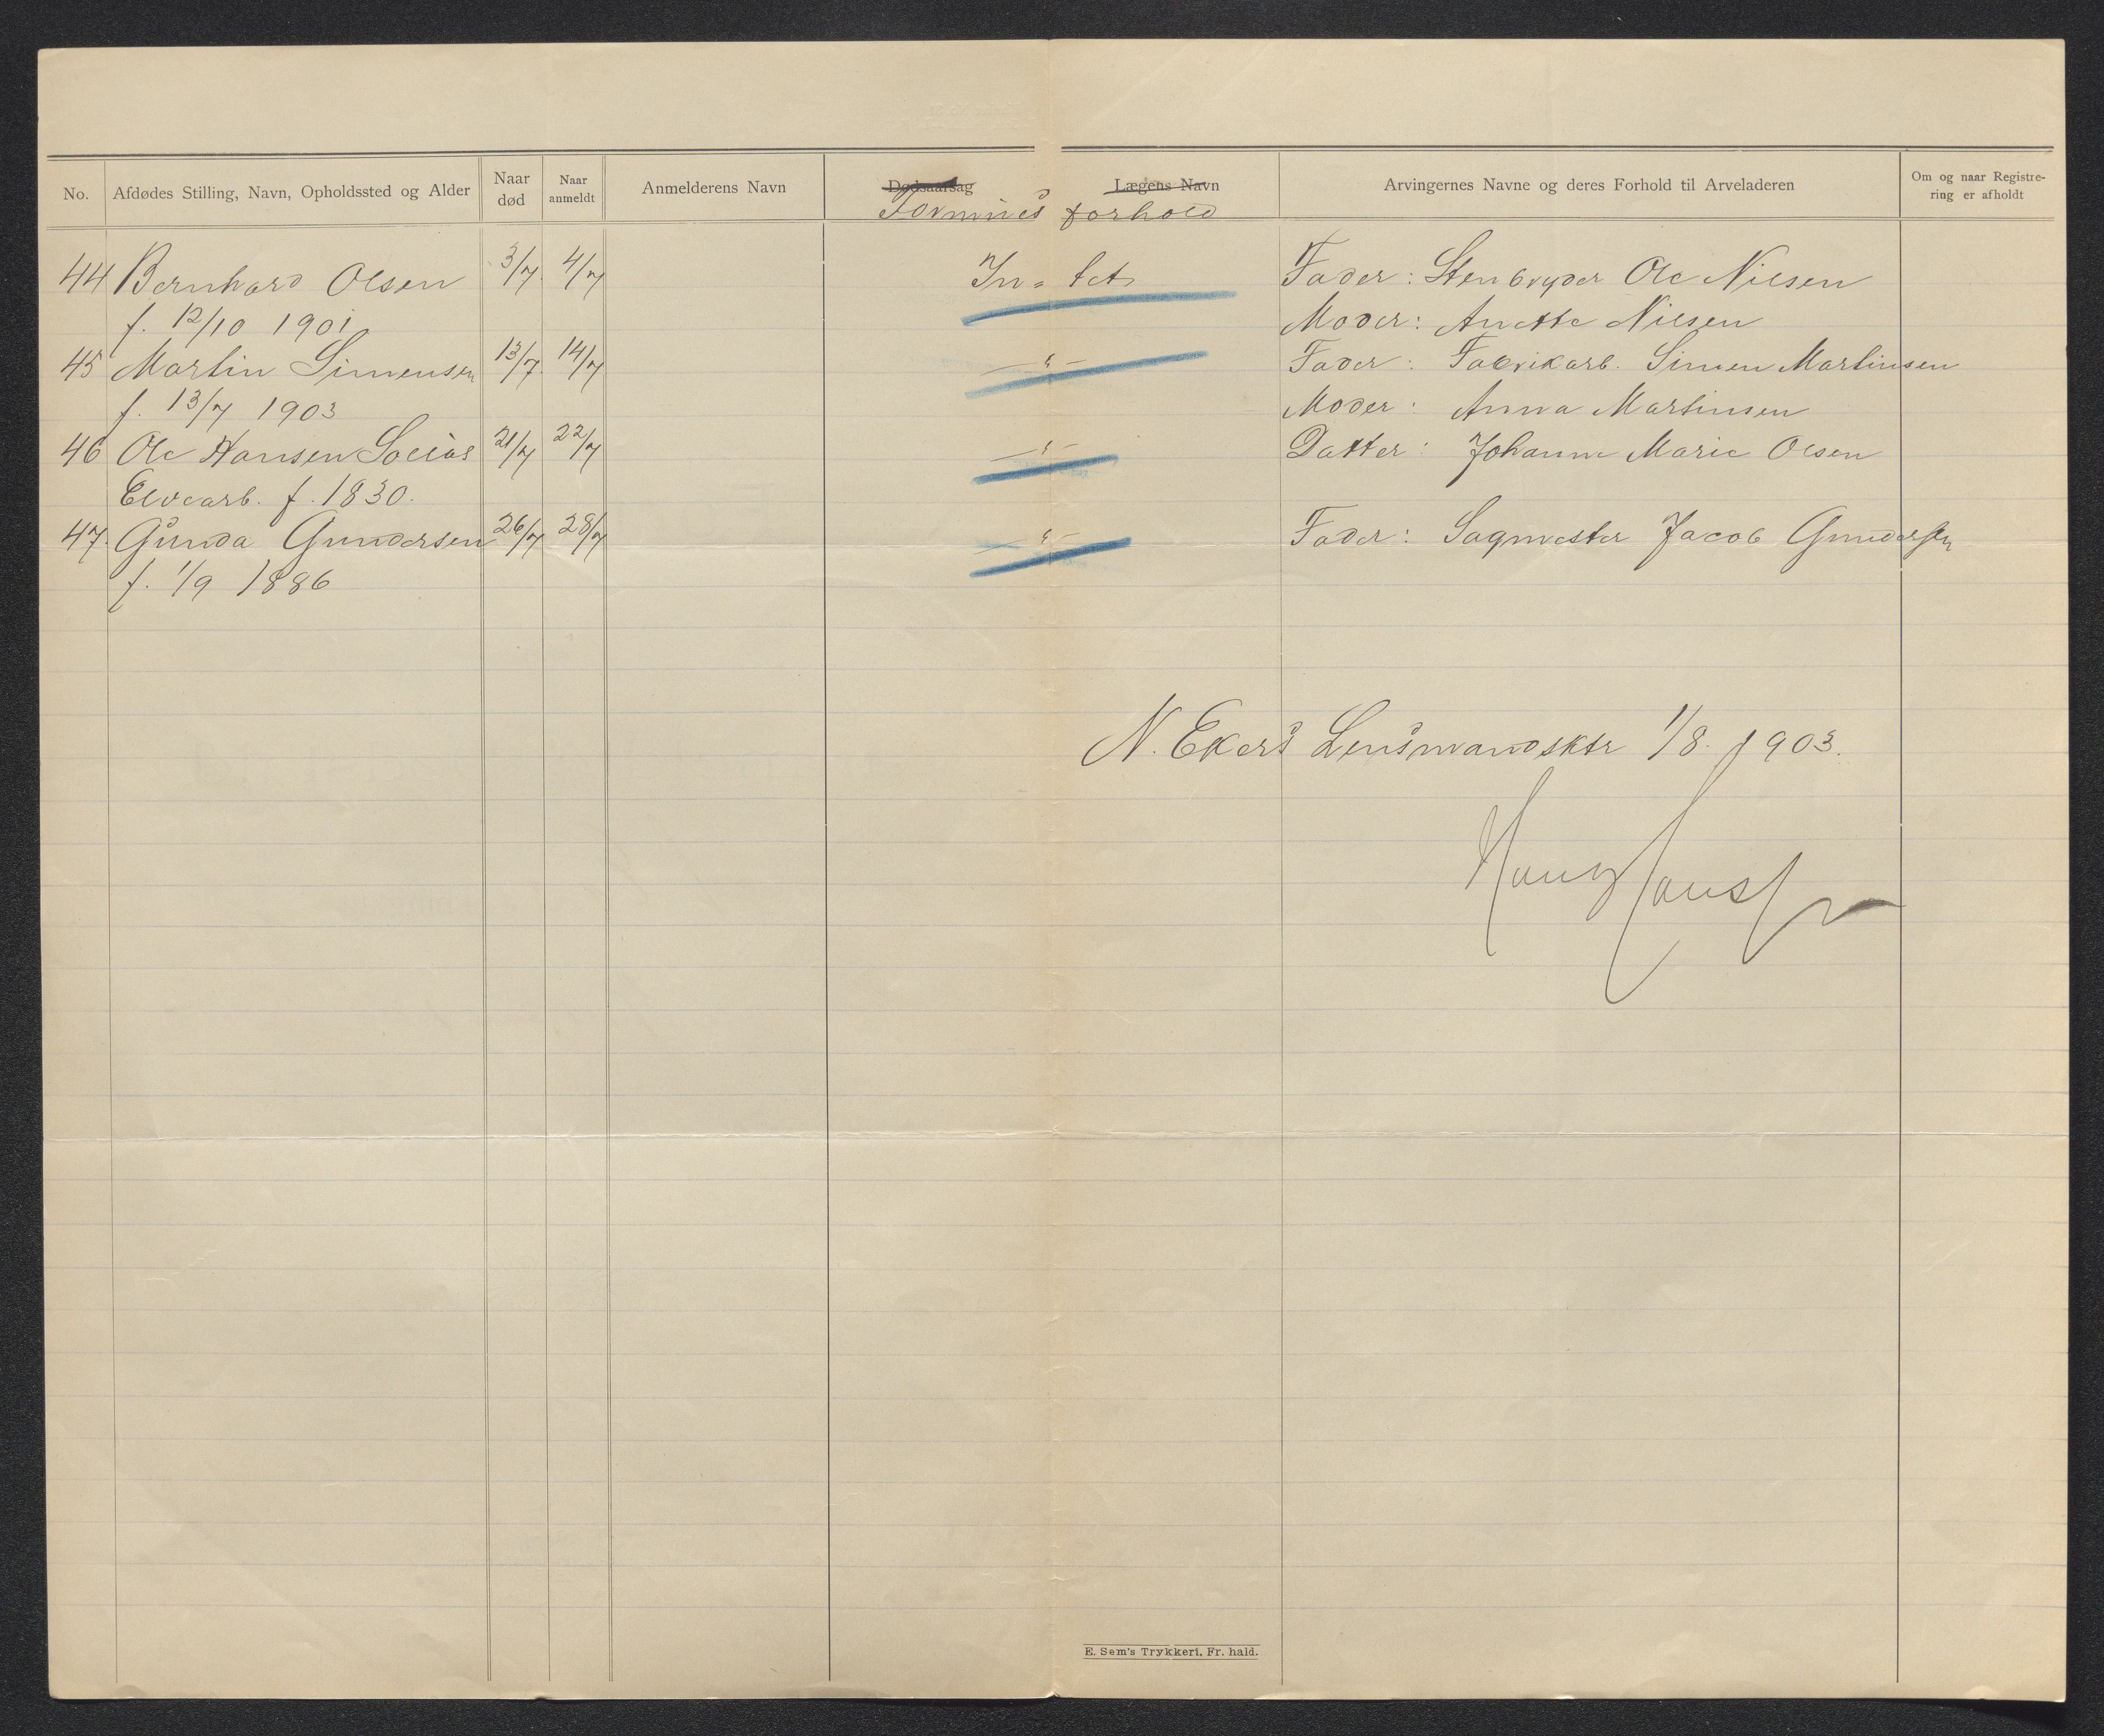 No. Afdødes Stilling, Navn, Opholdssted og Alder Naar død Naar anmeldt Anmelderens Navn Dødsaarsag Lægens Navn Arvingernes Navne og deres Forhold til Arveladeren Om og naar Registrering er afholdt
Formues forhold
44 Bernhard Olsen 3/7. 4/7 In= tet Fader: Stenbryder Ole Nilsen
f. 12/10 1901 Moder: Anette Nilsen
45 Martin Simensen 13/7. 14/7 — " — Fader: Fabrikarb. Simen Martinsen
f. 13/7 1903 Moder: Anna Martinsen
46 Ole Hansen 21/7 22/7 — " — Datter: Johanne Marie Olsen
Elvearb. f. 1830.
47. Gunda Gundersen 26/7 28/7 — " — Fader: Sagmester Jacob Gundersen
f. 1/9 1886
N. Ekers Lensmandsktr 1/8. 1903.
E. Sem's Trykkeri, Fr. hald.